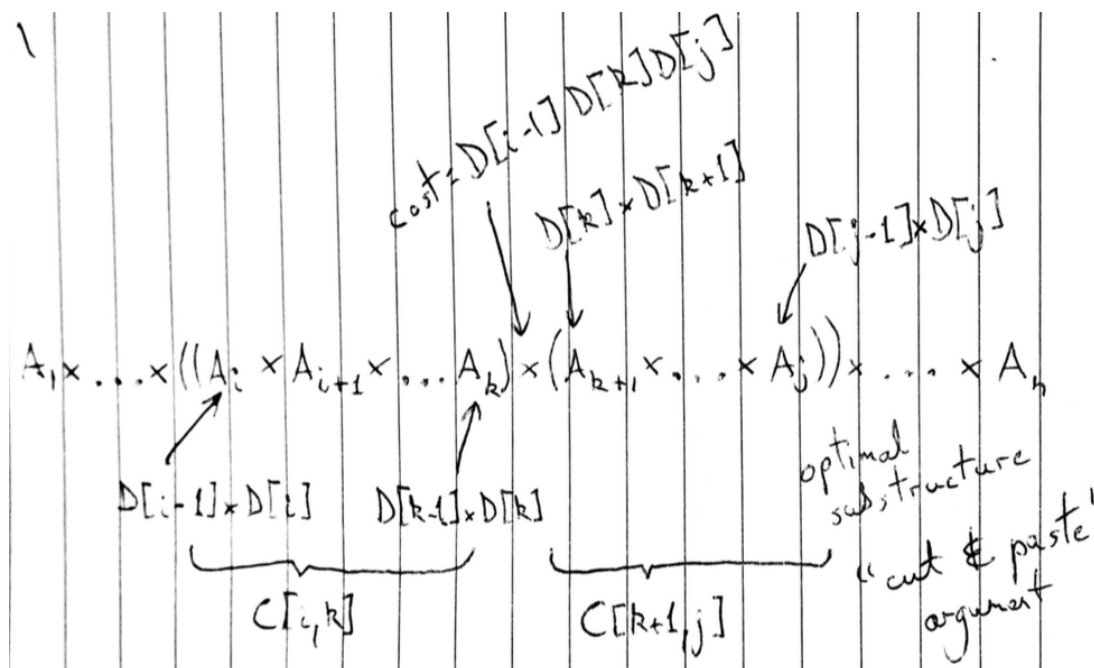 cost = D[i-1] D[k] D[j]
D[k] × D[k+1]
D[j-1] × D[j]
A₁ × .... × ((Aᵢ × Aᵢ₊₁ × ... Aₖ) × (Aₖ₊₁ × .... × Aⱼ)) × .... × Aₙ
D[i-1] × D[i]
D[k-1] × D[k]
optimal
substructure
"cut & paste"
argument
C[i,k]
C[k+1,j]